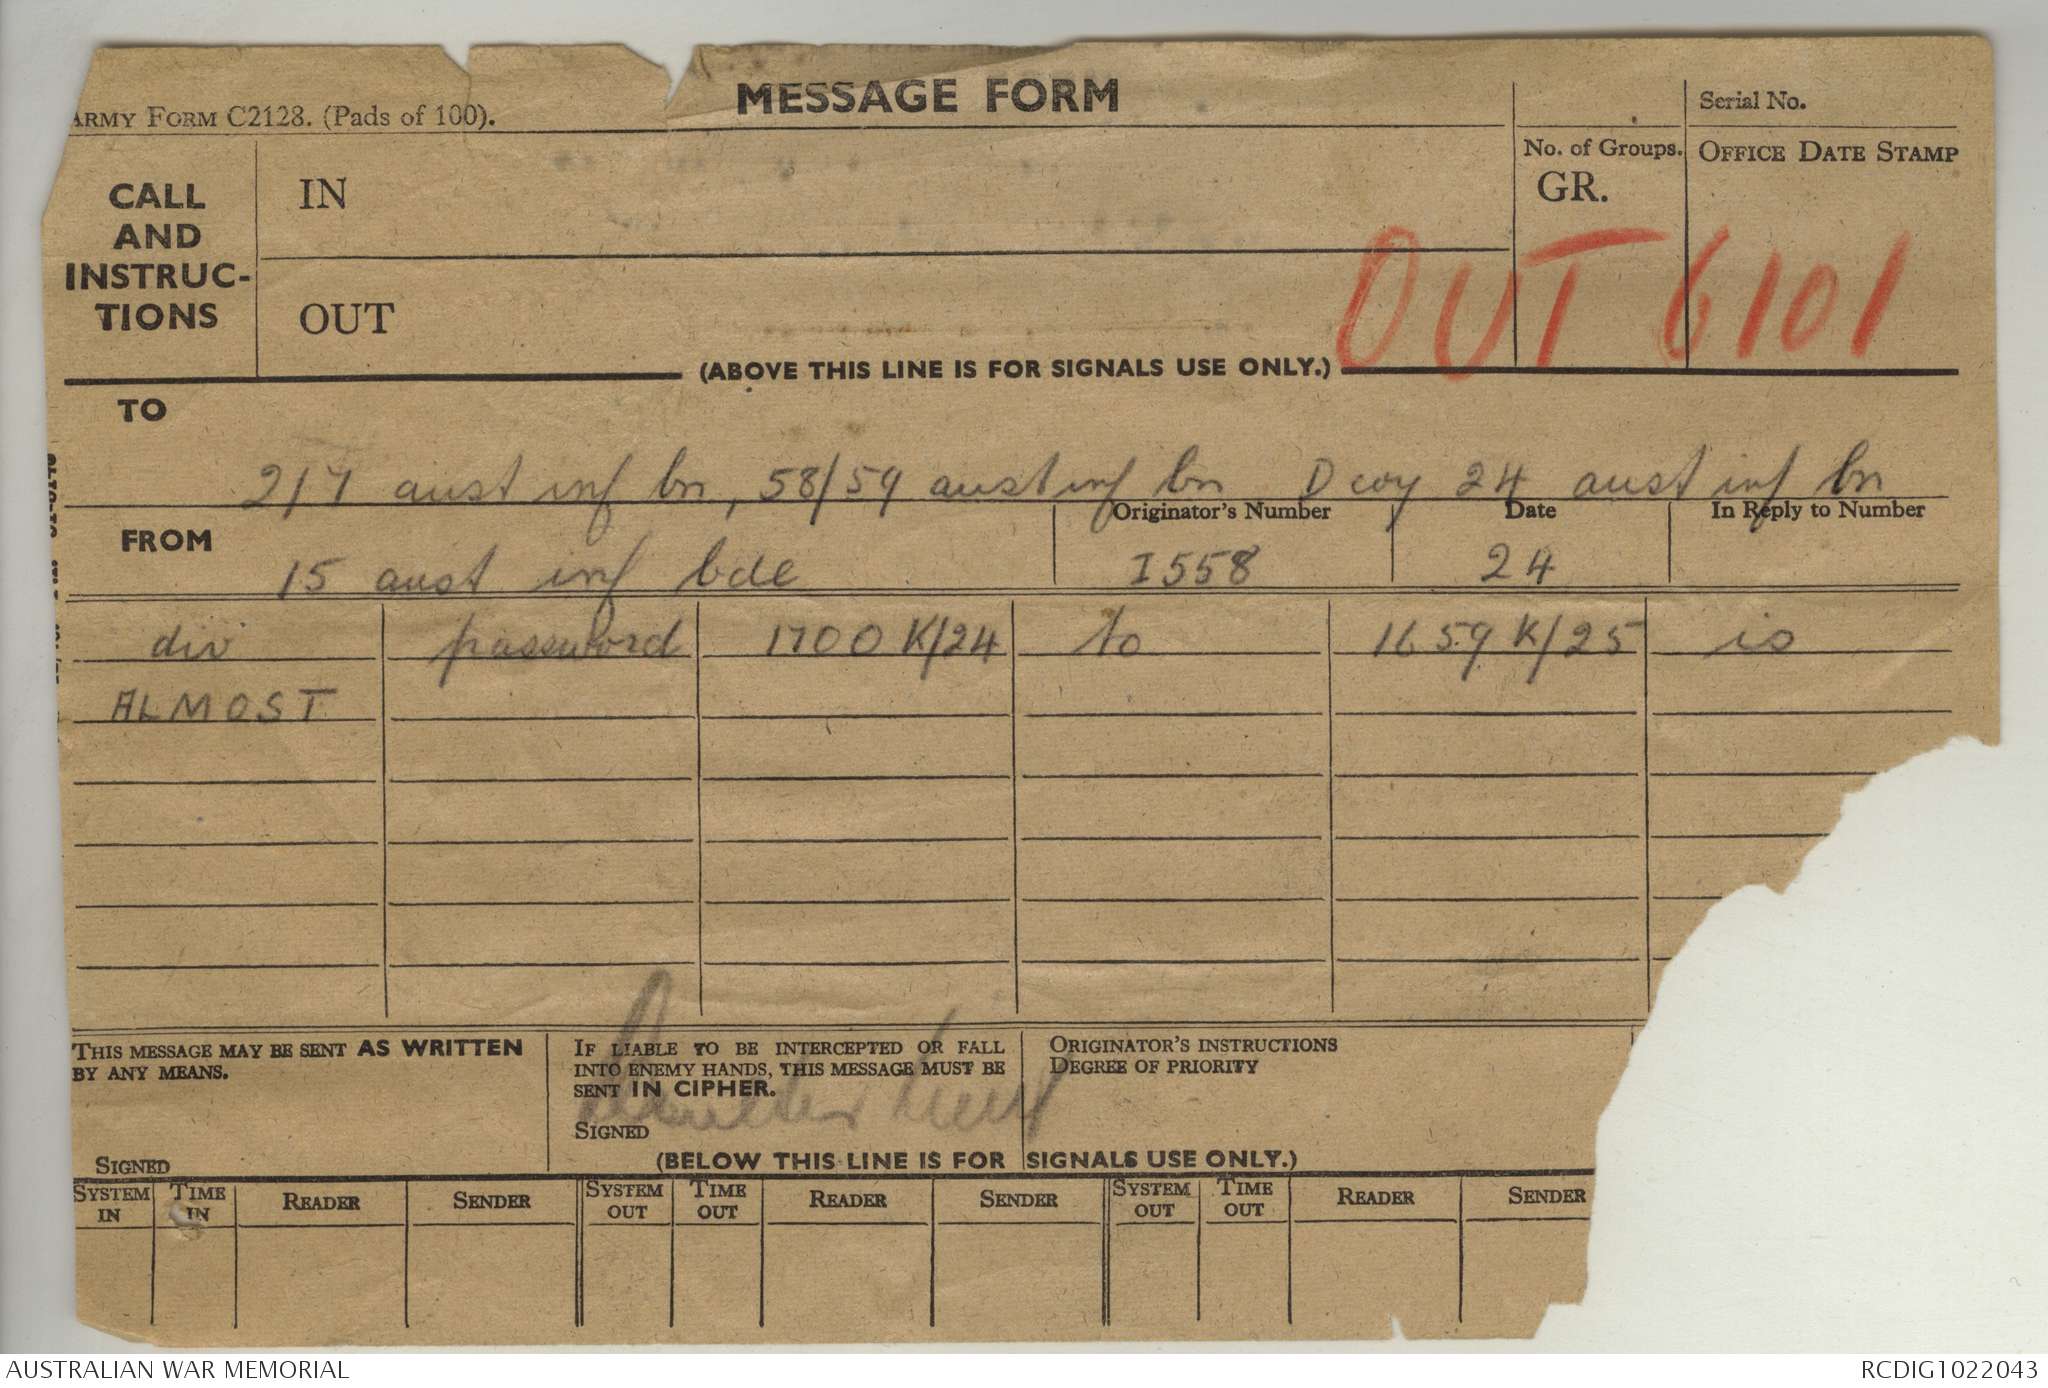 MESSAGE FORM
ARMY FORM C2128. (Pads of 100).
Serial No.
CALL AND INSTRUC-TIONS
IN
No. of Groups.
GR.
OFFICE DATE STAMP
OUT
OUT 6101
(ABOVE THIS LINE IS FOR SIGNALS USE ONLY.)
TO
2/7 aust inf bn, 58/59 aust inf bn D coy 24 aust inf bn
FROM
15 aust inf bde
Originator's Number
I558
Date
24
In Reply to Number
div password 1700 K/24 to 1659 K/25 is
ALMOST
THIS MESSAGE MAY BE SENT AS WRITTEN
BY ANY MEANS.
SIGNED
IF LIABLE TO BE INTERCEPTED OR FALL
INTO ENEMY HANDS, THIS MESSAGE MUST BE
SENT IN CIPHER.
SIGNED
Lieut
ORIGINATOR'S INSTRUCTIONS
DEGREE OF PRIORITY
(BELOW THIS LINE IS FOR SIGNALS USE ONLY.)
SYSTEM IN TIME IN READER SENDER SYSTEM OUT TIME OUT READER SENDER SYSTEM OUT TIME OUT READER SENDER
AUSTRALIAN WAR MEMORIAL
RCDIG1022043